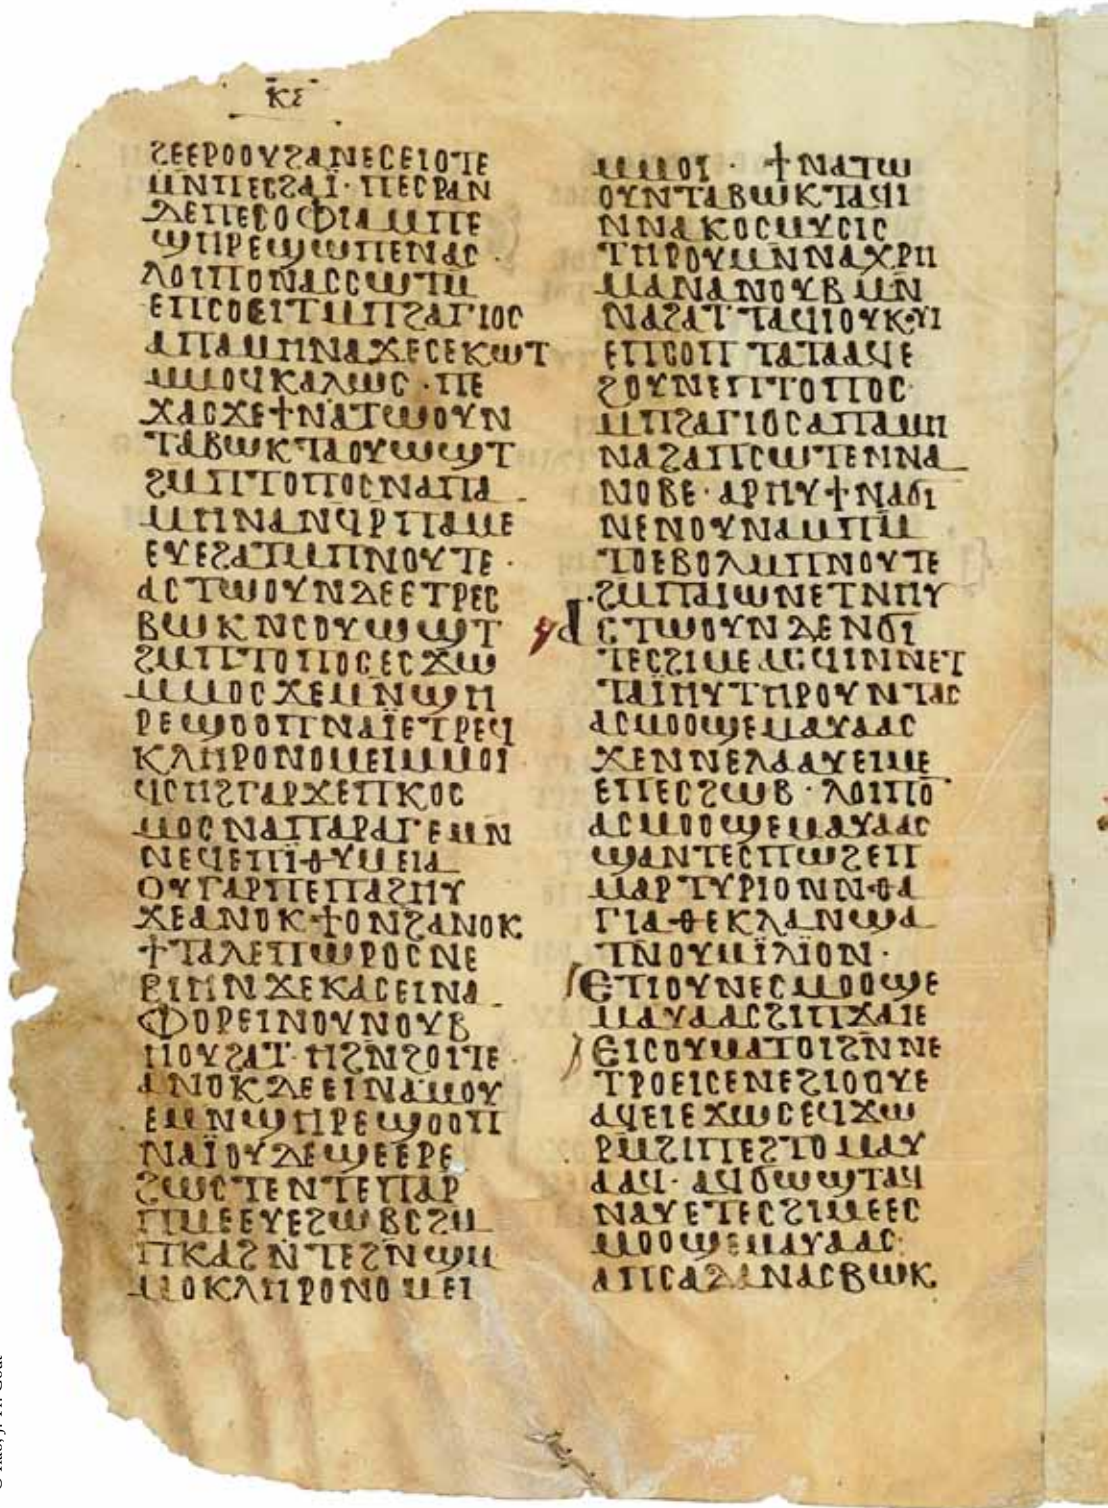 ⲕⲉ
ϩⲉⲉⲣⲟⲟⲩϩⲁⲛⲉⲥⲉⲓⲟⲧⲉ
ⲙⲛⲡⲉⲥϩⲁⲓ̈· ⲡⲉⲥⲣⲁⲛ
ⲇⲉⲡⲉⲥⲟⲫⲓⲁⲙⲡⲉ
ϣⲏⲣⲉϣⲱⲡⲉⲛⲁⲥ·
ⲗⲟⲓⲡⲟⲛⲁⲥⲥⲱⲧⲙ̄
ⲉⲡⲥⲟⲉⲓⲧⲙⲡϩⲁⲅⲓⲟⲥ
ⲁⲡⲁⲙⲏⲛⲁϫⲉⲥⲉⲕⲱⲧ
ⲙⲙⲟϥⲕⲁⲗⲱⲥ· ⲡⲉ
ϫⲁⲥϫⲉϯⲛⲁⲧⲱⲟⲩⲛ
ⲧⲁⲃⲱⲕⲧⲁⲟⲩⲱϣⲧ
ϩⲙⲡⲧⲟⲡⲟⲥⲛⲁⲡⲁ
ⲙⲏⲛⲁⲛϥⲣⲡⲁⲙⲉ
ⲉⲩⲉϩⲁⲧⲙⲡⲛⲟⲩⲧⲉ·
ⲁⲥⲧⲱⲟⲩⲛⲇⲉⲉⲧⲣⲉⲥ
ⲃⲱⲕⲛⲥⲟⲩⲱϣⲧ
ϩⲙⲡⲧⲟⲡⲟⲥⲉⲥϫⲱ
ⲙⲙⲟⲥϫⲉⲙⲛ̄ϣⲏ
ⲣⲉϣⲟⲟⲡⲛⲁⲓ̈ⲉⲧⲣⲉϥ
ⲕⲗⲏⲣⲟⲛⲟⲙⲉⲓⲙⲙⲟⲓ
ϥⲥⲏϩⲅⲁⲣϫⲉⲡⲕⲟⲥ
ⲙⲟⲥⲛⲁⲡⲁⲣⲁⲅⲉⲙⲛ
ⲛⲉϥⲉⲡⲓⲑⲩⲙⲉⲓⲁ
ⲟⲩⲅⲁⲣⲡⲉⲡⲁϩⲏⲩ
ϫⲉⲁⲛⲟⲕϯⲟⲛϩⲁⲛⲟⲕ
ϯⲧⲁⲗⲉⲡⲱⲣⲟⲥⲛⲉ
ⲃⲓⲏⲛϫⲉⲕⲁⲥⲉⲓⲛⲁ
ⲫⲟⲣⲉⲓⲛⲟⲩⲛⲟⲩⲃ
ⲏⲟⲩϩⲁⲧ· ⲏϩⲛϩⲟⲓⲧⲉ·
ⲁⲛⲟⲕⲇⲉⲉⲓⲛⲁⲙⲟⲩ
ⲉⲙⲛϣⲏⲣⲉϣⲟⲟⲡ
ⲛⲁⲓ̈ⲟⲩⲇⲉϣⲉⲉⲣⲉ
ϩⲱⲥⲧⲉⲛⲧⲉⲡⲁⲣ
ⲡⲙⲉⲉⲩⲉϩⲱⲃⲥϩⲙ
ⲡⲕⲁϩⲛ̄ⲧⲉϩⲛϣⲙ
ⲙⲟⲕⲗⲏⲣⲟⲛⲟⲙⲉⲓ
ⲙⲙⲟⲓ· ϯⲛⲁⲧⲱ
ⲟⲩⲛⲧⲁⲃⲱⲕⲧⲁϥⲓ
ⲛⲛⲁⲕⲟⲥⲙⲩⲥⲓⲥ
ⲧⲏⲣⲟⲩⲙⲛⲛⲁⲭⲣⲏ
ⲙⲁⲛⲁⲛⲟⲩⲃⲙⲛ̄
ⲛⲁϩⲁⲧⲧⲁϥⲓⲟⲩⲕⲟⲩⲓ
ⲉⲡⲥⲟⲡⲧⲁⲧⲁⲁϥⲉ
ϩⲟⲩⲛⲉⲡⲧⲟⲡⲟⲥ
ⲙⲡϩⲁⲅⲓⲟⲥⲁⲡⲁⲙⲏ
ⲛⲁϩⲁⲡⲥⲱⲧⲉⲛⲛⲁ
ⲛⲟⲃⲉ· ⲁⲣⲏⲩϯⲛⲁϭⲓ
ⲛⲉⲛⲟⲩⲛⲁⲙⲡⲙ̄
ⲧⲟⲉⲃⲟⲗⲙⲡⲛⲟⲩⲧⲉ
ϩⲙⲡⲁⲓⲱⲛⲉⲧⲛⲏⲩ
ⲁⲥⲧⲱⲟⲩⲛⲇⲉⲛϭⲓ
ⲧⲉⲥϩⲓⲙⲉⲁⲥϥⲓⲛⲛⲉⲧ
ⲧⲁⲓ̈ⲏⲩⲧⲏⲣⲟⲩⲛⲧⲁⲥ
ⲁⲥⲙⲟⲟϣⲉⲙⲁⲩⲁⲁⲥ
ϫⲉⲛⲛⲉⲗⲁⲁⲩⲉⲓⲙⲉ
ⲉⲡⲉⲥϩⲱⲃ· ⲗⲟⲓⲡⲟ̄
ⲁⲥⲙⲟⲟϣⲉⲙⲁⲩⲁⲁⲥ
ϣⲁⲛⲧⲉⲥⲡⲱϩⲉⲡ
ⲙⲁⲣⲧⲩⲣⲓⲟⲛⲛⲑⲁ
ⲅⲓⲁⲑⲉⲕⲗⲁⲛϣⲁ
ⲧⲛⲟⲩⲙⲓ̈ⲗⲓ̈ⲟⲛ·
ⲉⲧⲓⲟⲩⲛⲉⲥⲙⲟⲟϣⲉ
ⲙⲁⲩⲁⲁⲥϩⲓⲡϫⲁⲓⲉ
ⲉⲓⲥⲟⲩⲙⲁⲧⲟⲓϩⲛⲛⲉ
ⲧⲣⲟⲉⲓⲥⲉⲛⲉϩⲓⲟⲟⲩⲉ
ⲁϥⲉⲓⲉϫⲱⲥⲉϥϫⲱ
ⲣⲙϩⲓⲡⲉϩⲧⲟⲙⲁⲩ
ⲁⲁϥ· ⲁϥϭⲱϣⲧⲁϥ
ⲛⲁⲩⲉⲧⲉⲥϩⲓⲙⲉⲉⲥ
ⲙⲟⲟϣⲉⲙⲁⲩⲁⲁⲥ·
ⲁⲡⲥⲁⲇⲁⲛⲁⲥⲃⲱⲕ